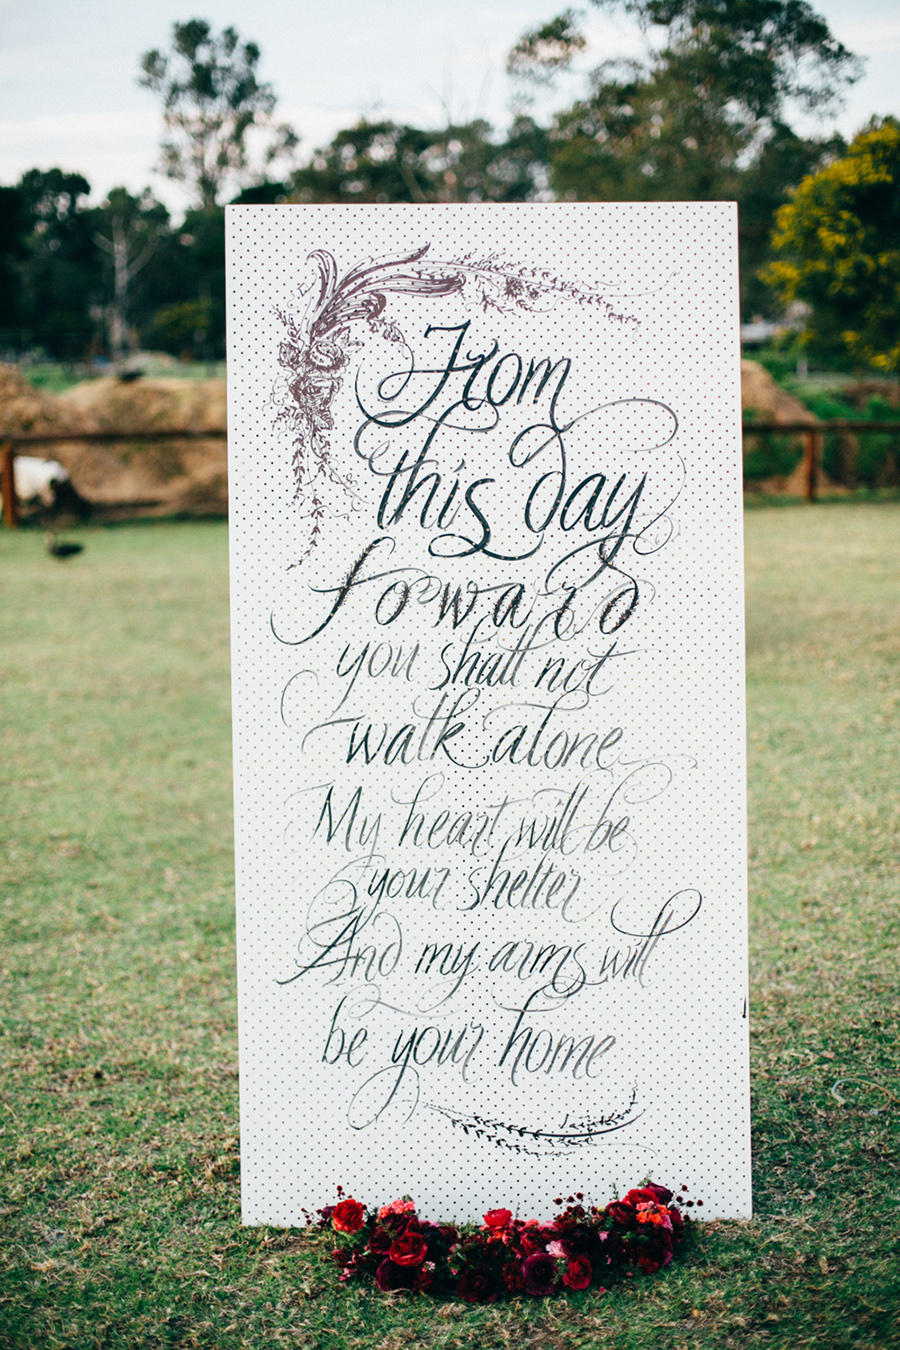 From
this day
forward
you shall not
walk alone
My heart will be
your shelter
And my arms will
be your home